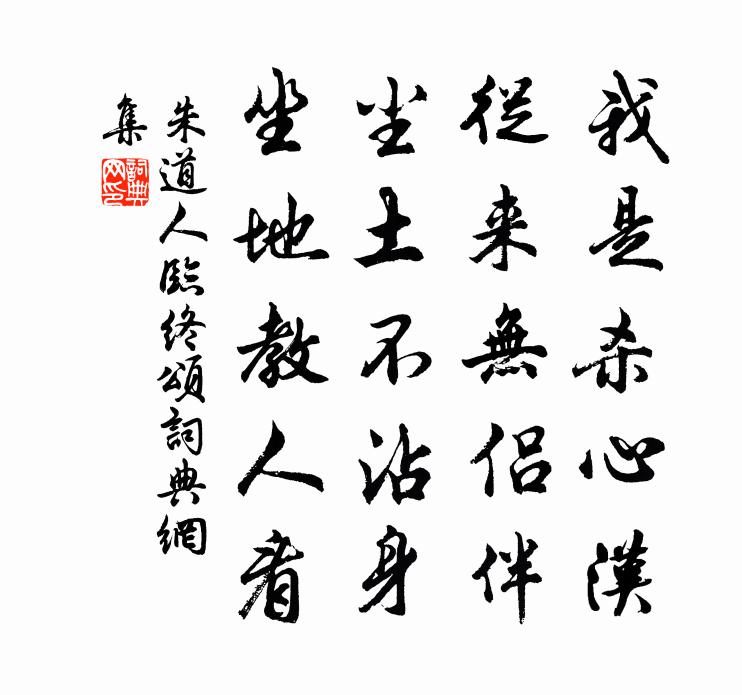 我是杀心漢
從来無侣伴
尘土不沾身
坐地教人看
朱道人臨终頌詞典網
集
詞典网印